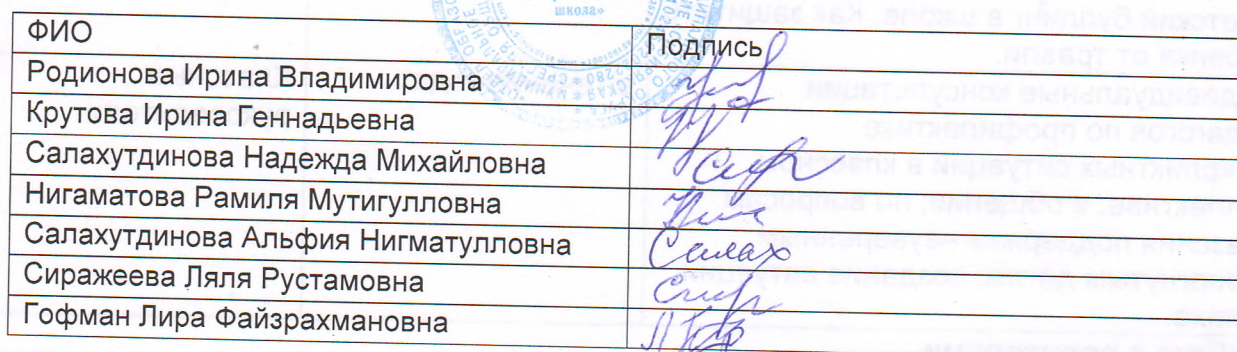 школа»
ФИО Подпись
Родионова Ирина Владимировна
Крутова Ирина Геннадьевна
Салахутдинова Надежда Михайловна
Нигаматова Рамиля Мутигулловна
Салахутдинова Альфия Нигматулловна Салах
Сиражеева Ляля Рустамовна
Гофман Лира Файзрахмановна